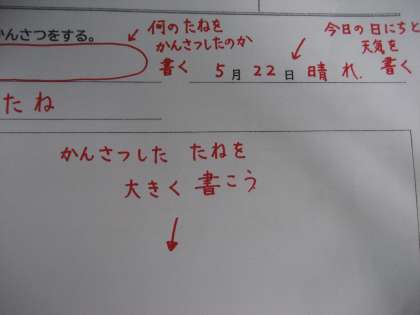 かんさつをする。
何のたねを
かんさつしたのか
書く
今日の日にちと
天気を
書く
5月22日 晴れ.
たね
かんさつした たねを
大きく 書こう